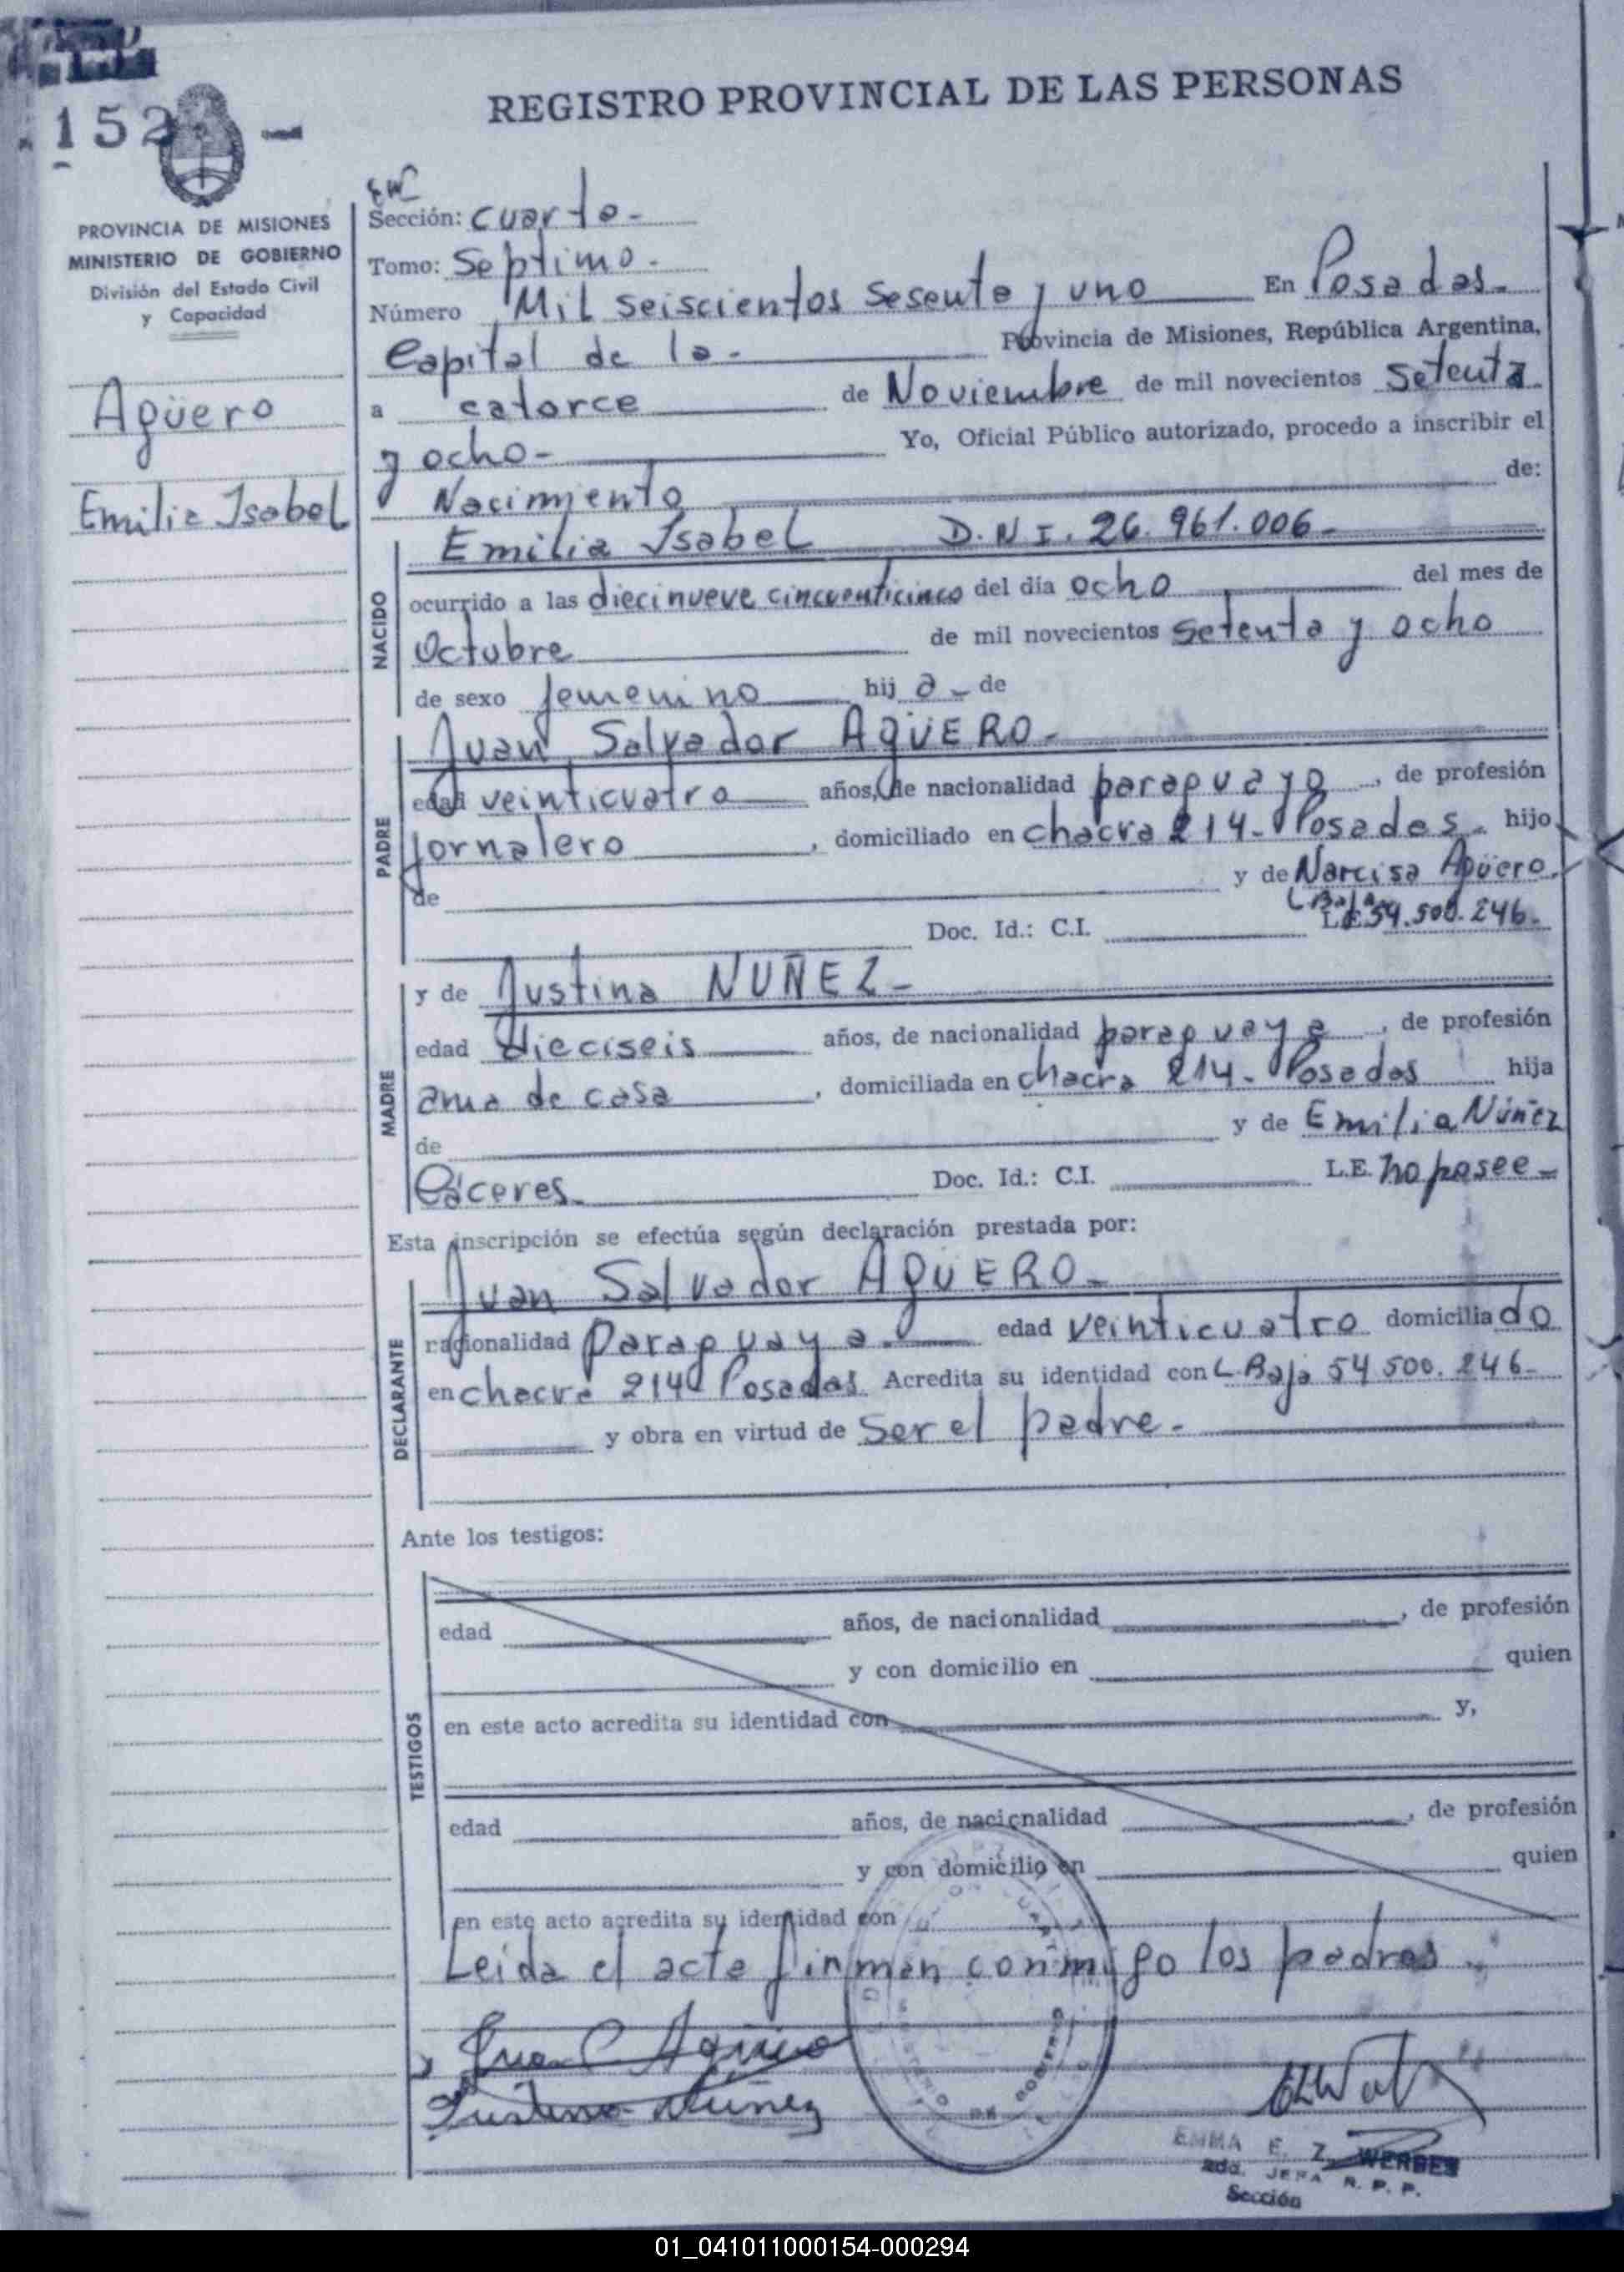 152
REGISTRO PROVINCIAL DE LAS PERSONAS
PROVINCIA DE MISIONES
MINISTERIO DE GOBIERNO
División del Estado Civil
y Capacidad
Agüero
Emilia Isabel
Sección: cuarta-
Tomo: Septimo-
Número Mil seiscientos sesenta y uno En Posadas-
Capital de la- Provincia de Misiones, República Argentina,
a catorce de Noviembre de mil novecientos setenta
y ocho- Yo, Oficial Público autorizado, procedo a inscribir el
Nacimiento de:
NACIDO
Emilia Isabel D.N.I. 26.961.006-
ocurrido a las diecinueve cincuenticinco del día ocho del mes de
Octubre de mil novecientos setenta y ocho
de sexo femenino hij a- de
PADRE
Juan Salvador AGÜERO-
edad veinticuatro años, de nacionalidad paraguaya, de profesión
jornalero, domiciliado en chacra 214- Posadas- hijo
de y de Narcisa Agüero.
L Baja
Doc. Id.: C.I. L.E. 54.500.246-
MADRE
y de Justina NUÑEZ-
edad dieciseis años, de nacionalidad paraguaya, de profesión
ama de casa, domiciliada en chacra 214- Posadas hija
de y de Emilia Núñez
Cáceres Doc. Id.: C.I. L.E. no posee-
Esta inscripción se efectúa según declaración prestada por:
DECLARANTE
Juan Salvador AGÜERO-
nacionalidad Paraguaya- edad veinticuatro domiciliado
en chacra 214 Posadas Acredita su identidad con L Baja 54 500.246-
y obra en virtud de ser el padre-
Ante los testigos:
TESTIGOS
edad años, de nacionalidad, de profesión
y con domicilio en quien
en este acto acredita su identidad con y,
edad años, de nacionalidad, de profesión
y con domicilio en quien
en este acto acredita su identidad con
Leida el acta firman conmigo los padres.
Justina Núñez
EMMA E. Z. WERBES
JEFA R. P. P.
Sección
01_041011000154-000294